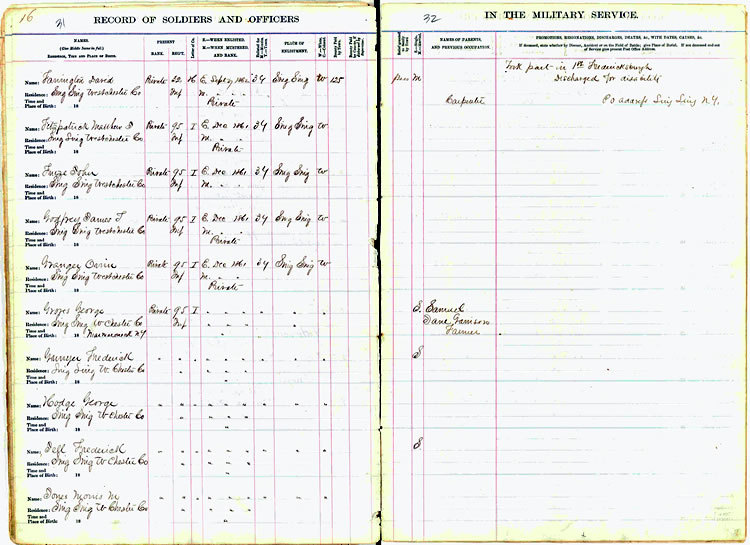 16
31
RECORD OF SOLDIERS AND OFFICERS
NAMES.
(Give Middle Name in full.)
RESIDENCE, TIME AND PLACE OF BIRTH.
PRESENT
RANK. REGT.
Letter of Co.
E.—WHEN ENLISTED.
M.—WHEN MUSTERED,
AND RANK.
PLACE OF
ENLISTMENT.
Name: Farrington David Private 32 E. Sept 1861 34 Sing Sing W 125
Residence: Sing Sing Westchester Co Inf M.
Time and Private
Place of Birth: 18
Name: Fitzpatrick Matthew Private 95 I E. Dec 1861 34 Sing Sing W
Residence: Sing Sing Westchester Co Inf M. " "
Time and Private
Place of Birth: 18
Name: John Private 95 I E. Dec 1861 34 Sing Sing W
Residence: Sing Sing Westchester Co Inf M. " "
Time and
Place of Birth: 18
Name: Godfrey James T Private 95 I E. Dec 1861 34 Sing Sing W
Residence: Sing Sing Westchester Co Inf M. " "
Time and Private
Place of Birth: 18
Name: Granger Private 95 I E. Dec 1861 34 Sing Sing W
Residence: Sing Sing Westchester Co Inf M. " "
Time and Private
Place of Birth: 18
Name: Groves George Private 95 I " " " " " "
Residence: Sing Sing W Chester Co Inf " " "
Time and Mamaroneck N.Y
Place of Birth: 18
Name: Frederick " " " " " " " " "
Residence: Sing Sing W. Chester Co " " "
Time and
Place of Birth: 18
Name: Hodge George " " " " " " " " "
Residence: Sing Sing W Chester Co " " "
Time and
Place of Birth: 18
Name: Frederick " " " " " " " " "
Residence: Sing Sing W Chester Co " " "
Time and
Place of Birth: 18
Name: Jones Morris M " " " " " " " "
Residence: Sing Sing W Chester Co " " "
Time and
Place of Birth: 18
32
IN THE MILITARY SERVICE.
NAMES OF PARENTS,
AND PREVIOUS OCCUPATION.
PROMOTIONS, RESIGNATIONS, DISCHARGES, DEATHS, &c., WITH DATES, CAUSES, &c.
If deceased, state whether by Disease, Accident or on the Field of Battle; give Place of Burial. If not deceased and out
of Service give present Post Office Address.
Took part in 1st Fredericksburgh
M. Discharged for disability
Carpenter P.O address Sing Sing N.Y.
S. Samuel
Jane Garrison
Farmer
S
S.